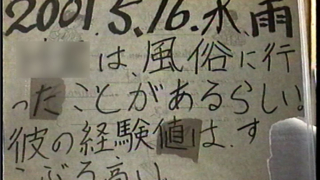 2001.5.16.水.雨
は、風俗に行
ったことがあるらしい。
彼の経験値は、す
こぶる高い